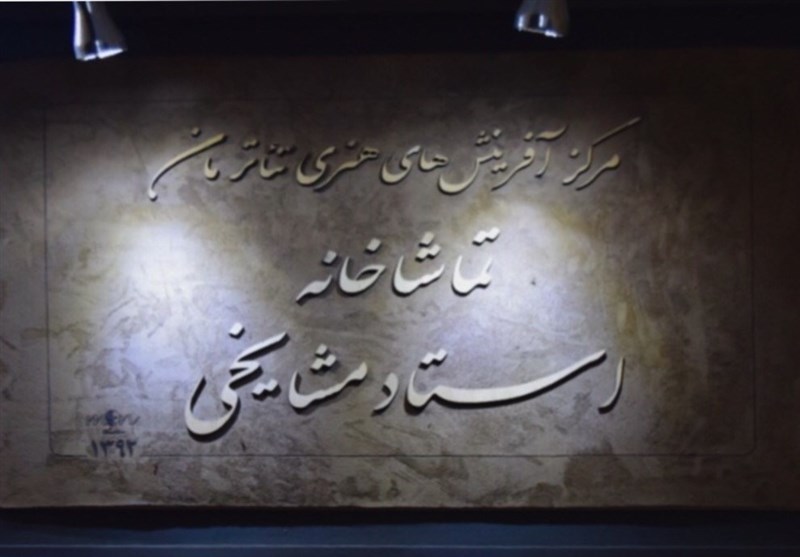 مرکز آفرینش‌های هنری تئاتر مان
تماشاخانه
استاد مشایخی
۱۳۹۲